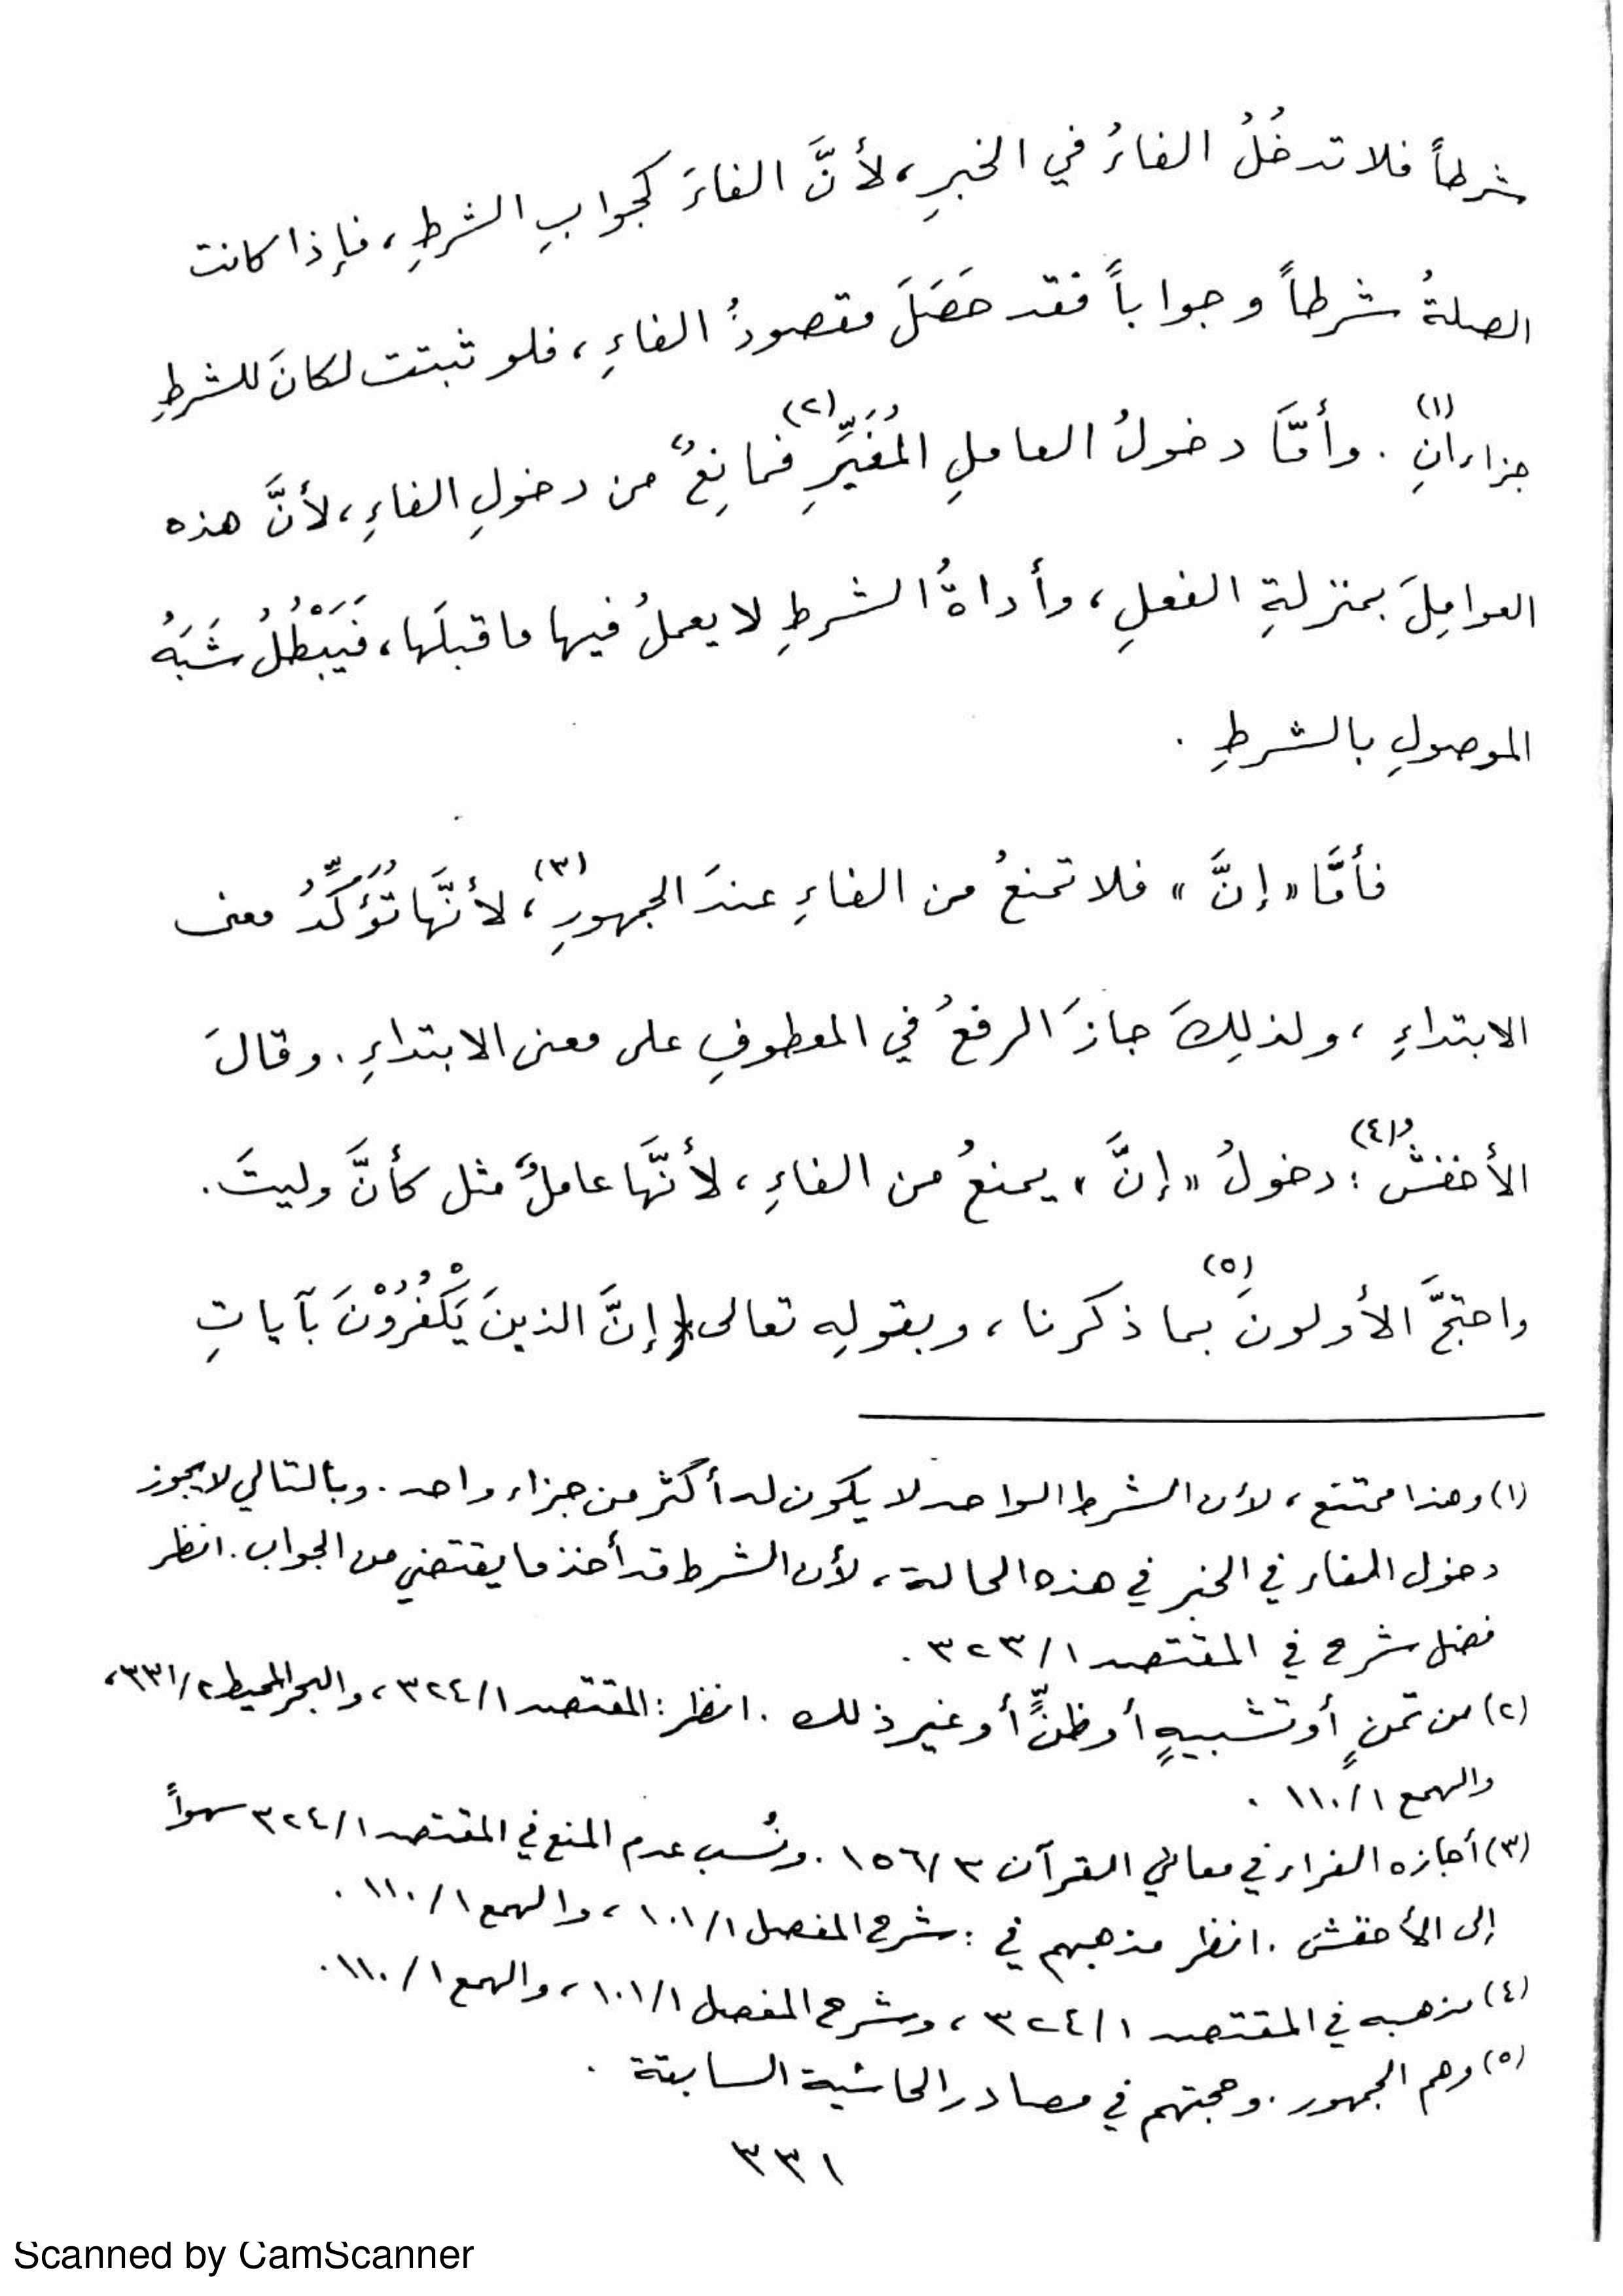 شرطاً فلا تدخُلُ الفاءُ في الخبرِ، لأنَّ الفاءَ كجوابِ الشرطِ، فإذا كانت
الصلةُ شرطاً وجواباً فقد حَصَلَ مقصودُ الفاءِ، فلو ثبتت لكانَ للشرطِ
جزاءانِ (١). وأمَّا دخولُ العاملِ المُغَيِّرِ (٢) فمانِعٌ من دخولِ الفاءِ، لأنَّ هذه
العوامِلَ بمنزلةِ الفعلِ، وأداةُ الشرطِ لا يعملُ فيها ما قبلَها، فَيَبْطُلُ شَبَهُ
الموصولِ بالشرطِ .
فأمَّا «إنَّ» فلا تمنعُ من الفاءِ عندَ الجمهورِ (٣)، لأنَّها تُؤَكِّدُ معنى
الابتداءِ، ولذلِكَ جازَ الرفعُ في المعطوفِ على معنى الابتداءِ. وقالَ
الأخفشُ (٤): دخولُ «إنَّ» يمنعُ من الفاءِ، لأنَّها عاملٌ مثل كأنَّ وليتَ.
واحتجَّ الأولونَ (٥) بما ذكرنا، وبقولِه تعالى ﴿إنَّ الذينَ يَكْفُرُوْنَ بآياتِ
(١) وهذا ممتنع، لأن الشرط الواحد لا يكون له أكثر من جزاء واحد. وبالتالي لا يجوز
دخول الفاء في الخبر في هذه الحالة، لأن الشرط قد أخذ ما يقتضي من الجواب. انظر
فضل شرح في المقتصد ١/ ٣٢٣ .
(٢) من تمنٍ أو تشبيهٍ أو ظنٍّ أو غير ذلك . انظر: المقتصد ١/ ٣٢٤، والبحر المحيط ٢/ ٣٣١،
والهمع ١/ ١١٠ .
(٣) أجازه الفراء في معاني القرآن ٣/ ١٥٦. ونُسب عدم المنع في المقتصد ١/ ٣٢٤ سهواً
إلى الأخفش . انظر مذهبهم في : شرح المفصل ١/ ١٠١، والهمع ١/ ١١٠ .
(٤) مذهبه في المقتصد ١/ ٣٢٤، وشرح المفصل ١/ ١٠١، والهمع ١/ ١١٠.
(٥) وهم الجمهور. وحجتهم في مصادر الحاشية السابقة .
٣٣١
Scanned by CamScanner